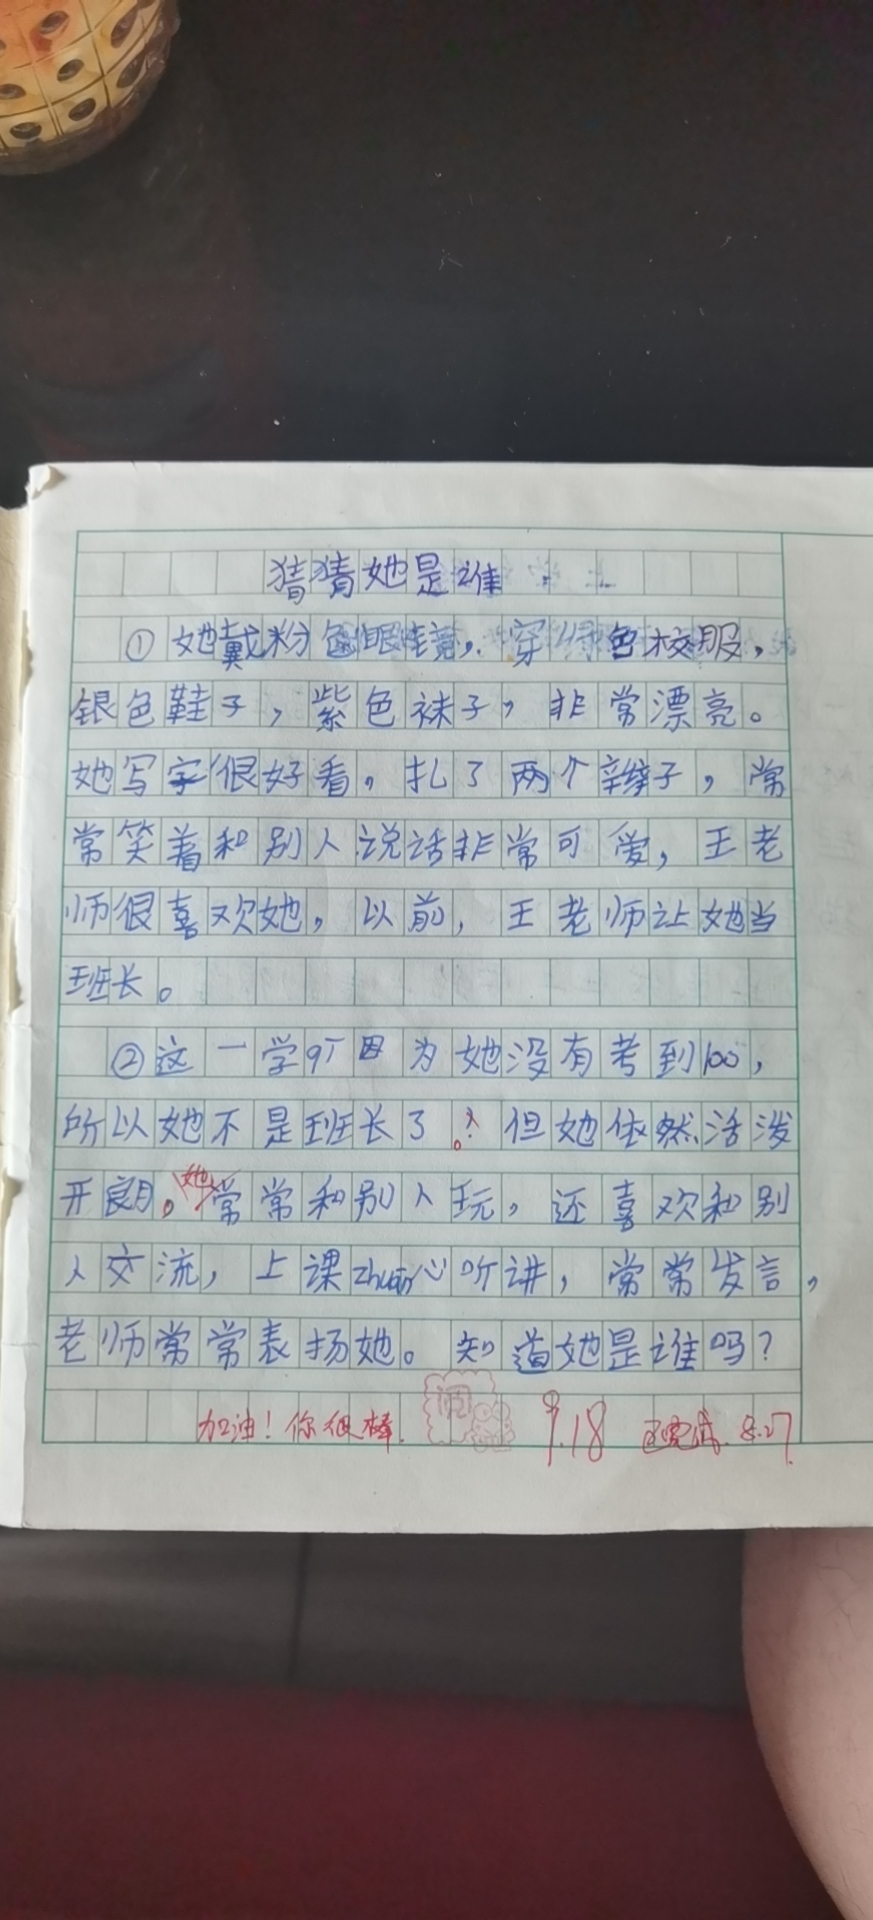 猜猜她是谁
①她戴粉色眼镜,穿绿色校服,
银色鞋子,紫色袜子,非常漂亮。
她写字很好看,扎了两个辫子,常
常笑着和别人说话非常可爱,王老
师很喜欢她,以前,王老师让她当
班长。
②这一学 因为她没有考到100,
所以她不是班长了。但她依然活泼
开朗。她常常和别人玩,还喜欢和别
人交流,上课zhuan心听讲,常常发言,
老师常常表扬她。知道她是谁吗?
加油!你很棒. 阅 9.18 8.27